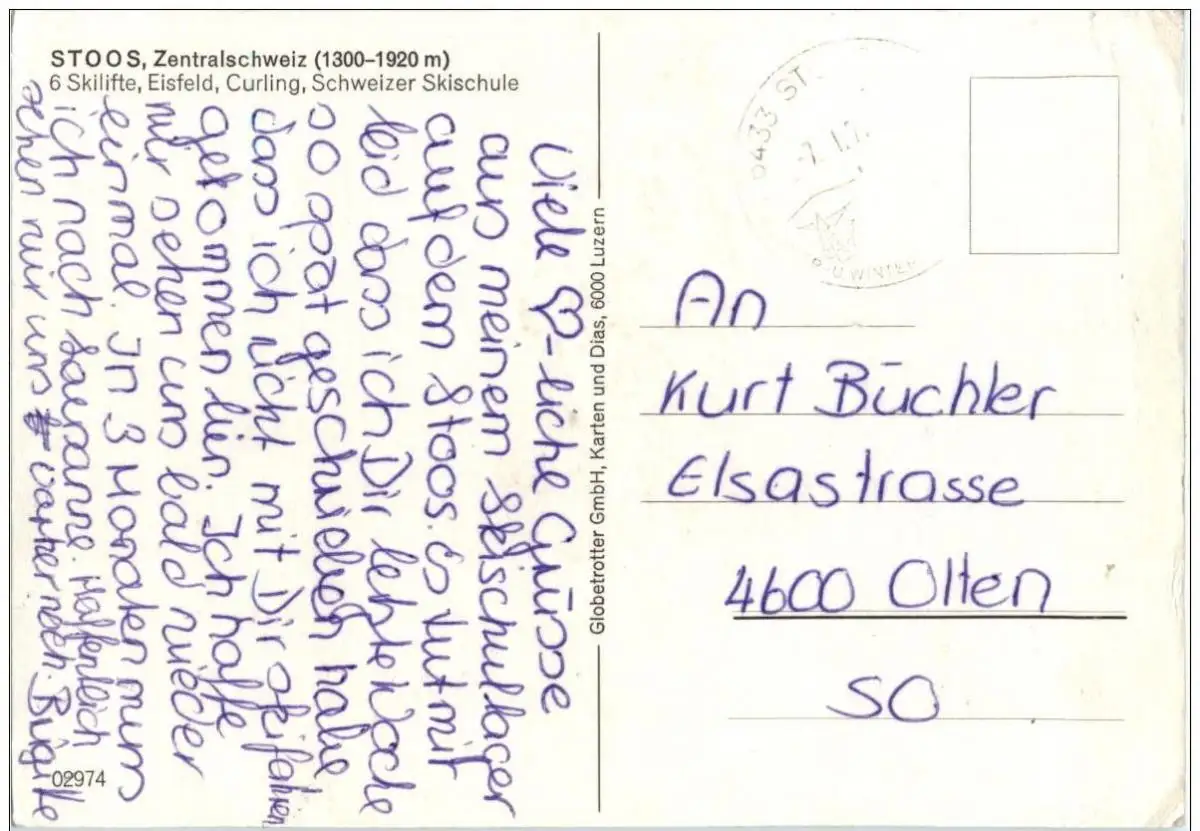 STOOS, Zentralschweiz (1300–1920 m)
6 Skilifte, Eisfeld, Curling, Schweizer Skischule
Viele ♡-liche Grüsse
aus meinem Skischullager
auf dem Stoos. Es tut mir
leid dass ich Dir letzte Woche
so spät geschrieben habe
dass ich nicht mit Dir skifahren
gekommen bin. Ich hoffe
wir sehen uns bald wieder
einmal. In 3 Monaten muss
ich nach Lausanne. Hoffentlich
sehen wir uns vorher noch. Brigitte
02974
Globetrotter GmbH, Karten und Dias, 6000 Luzern
6433 ST
7. 1. 7
U WINTER
An
Kurt Büchler
Elsastrasse
4600 Olten
SO